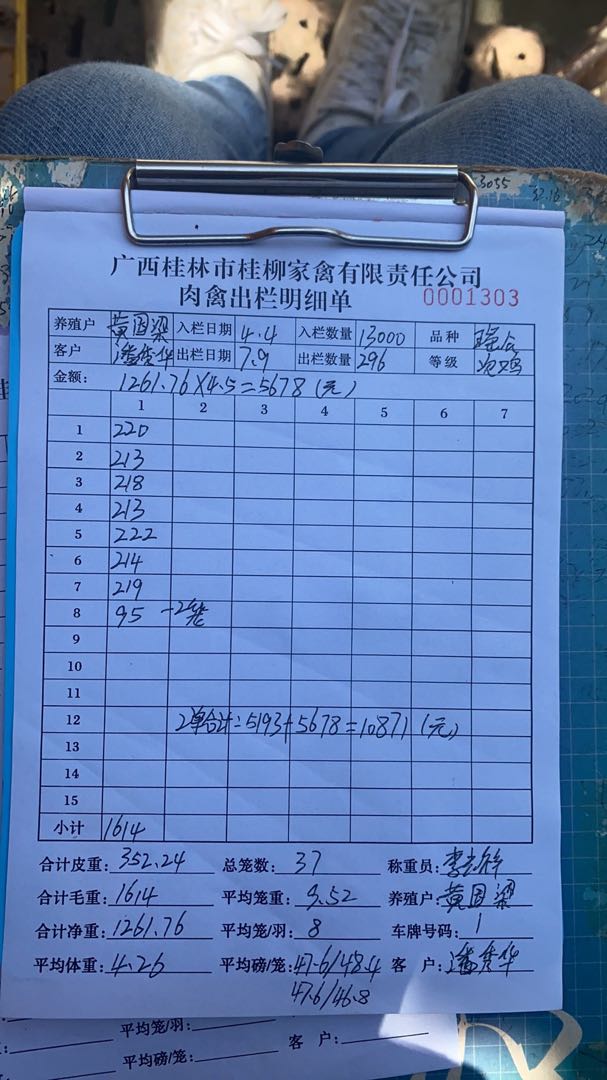 广西桂林市桂柳家禽有限责任公司
肉禽出栏明细单 0001303
养殖户 黄国梁 入栏日期 4.4 入栏数量 13000 品种
客户 潘秀华 出栏日期 7.9 出栏数量 296 等级 次鸡
金额: 1261.76×4.5=5678(元)
1 2 3 4 5 6 7
1 220
2 213
3 218
4 213
5 222
6 214
7 219
8 95 -2笼
9
10
11
12 2单合计=5193+5678=10871(元)
13
14
15
小计 1614
合计皮重: 352.24 总笼数: 37 称重员:
合计毛重: 1614 平均笼重: 9.52 养殖户: 黄国梁
合计净重: 1261.76 平均笼/羽: 8 车牌号码: 1
平均体重: 4.26 平均磅/笼: 47.6/48.4 客 户: 潘秀华
47.6/46.8
平均笼/羽:
平均磅/笼: 客 户: